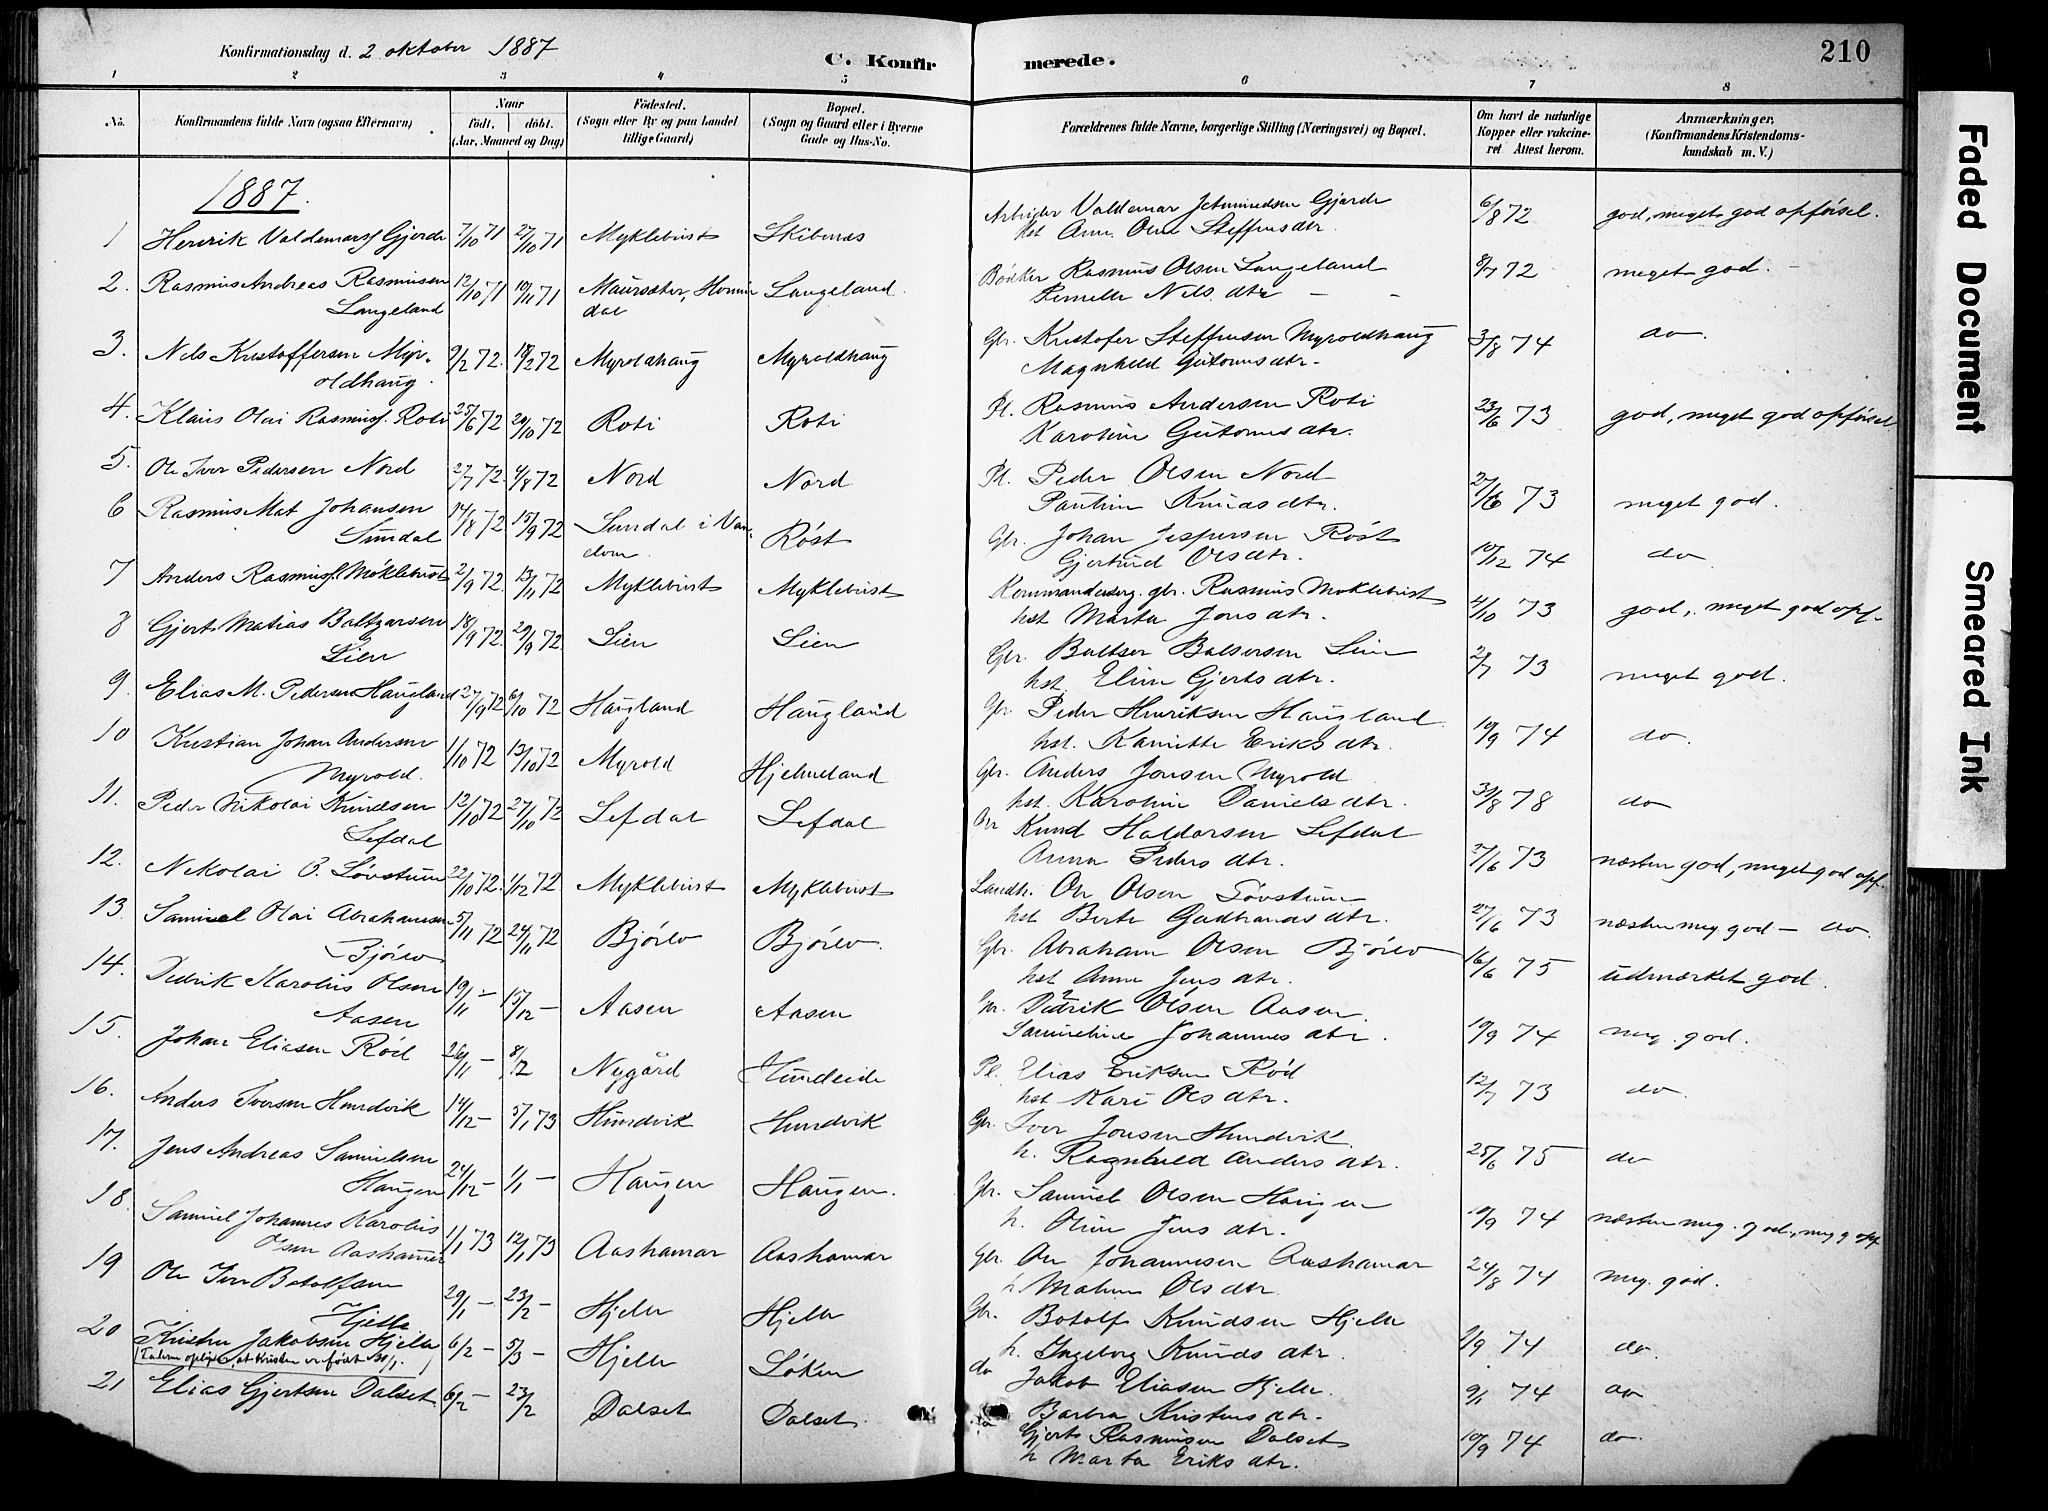 Konfirmationsdag d. 2 oktober 1887
C. Konfirmerede.
210
1 2 3 4 5 6 7 8
No.
Konfirmandens fulde Navn (ogsaa Efternavn)
Naar
født. døbt.
(Aar, Maaned og Dag)
Fødested.
(Sogn eller By og paa Landet
tillige Gaard)
Bopæl.
(Sogn og Gaard eller i Byerne
Gade og Hus-No.
Forældrenes fulde Navne, borgerlige Stilling (Næringsvei) og Bopæl.
Om havt de naturlige
Kopper eller vakcine-
ret Attest herom.
Anmærkninger.
(Konfirmandens Kristendoms-
kundskab m. V.)
1887.
1 Henrik Valdemarsf Gjerde 7/10 71 27/10 71 Myklebust Skibenes Arbeider Valdemar Gjerde 6/8 72 god, meget god opførsel.
hst Ane Oline Steffensdtr.
2. Rasmus Andreas Rasmusen 12/10 71 19/11 71 Maursæter, Hornin Langeland. Bødker Rasmus Olsen Langeland 8/7 72 meget god. -
Langeland dal Pernille Nels dtr - -
3. Nels Kristoffersen Myr- 9/2 72. 18/2 72 Myroldhaug Myroldhaug Gbr. Kristofer Steffensen Myroldhaug 3/8 74 do.
oldhaug. Magnhild Gutormsdtr-
4. Klaus Olai Rasmusf. Roti 25/6 72 20/10 72 Roti Roti Pl. Rasmus Andersen Roti 23/6 73 god, meget god opførsel
Karoline Gutormsdtr.
5. Ole Iver Pedersen Nord 27/7 72. 4/8 72 Nord Nord Pl. Peder Olsen Nord 27/6 73 meget god.
Pauline Knudsdtr.
6 Rasmus Mat Johansen 14/8 72 15/9 72 Sundal i Van- Røst Gbr. Johan Jespersen Røst 10/12 74 do
Sundal Gjertrud Olsdtr.
7 Anders Rasmusf. Møklebust 2/9 72. 13/11 72 Myklebust Myklebust gbr. Rasmus Moklebust 4/10 73 god, meget god opf-
hst Marta Jonsdtr.
8 Gjert Matias Baltzarsen 18/9 72. 29/9 72. Lien Lien Gbr. Baltser Balsersen Lien 2/7 73 meget god.
Lien hst. Eline Gjertsdtr.
9. Elias M. Pedersen Haugland 27/9 72 6/10 72 Haugland Haugland Gbr. Peder Henriksen Haugland. 10/9 74 do.
hst. Eriksdtr.
10 Kristian Johan Andersen 1/10 72 13/10 72 Myrold Hjelmeland Gbr. Anders Jonsen Myrold 31/8 78 do
Myrold. hst. Karoline Danielsdtr.
11. Peder Nikolai Knudsen 12/10 72 27/10 72 Lefdal Lefdal Gbr Knud Haldorsen Lefdal 27/6 73 næsten god, meget god opf.
Lefdal Anna Pedersdtr.
12. Nikolai O. Løvstuen 22/10 72. 1/12 72 Myklebust Myklebust Landh. Ole Olsen Løvstuen 27/6 73 næsten meg god - do.
hst Berte Gudbrandsdtr.
13. Samuel Olai Abrahamsen 5/11 72 24/11 72 Bjørlo Bjørlo. Gbr. Abraham Olsen Bjørlo 16/6 75 udmærket god.
Bjørlo hst Anne Jensdtr.
14. Didrik Karolius Olsen 19/11 - 15/12 - Aasen Aasen Gbr. Didrik Olsen Aasen. 19/9 74 meg. god.
Aasen Johannesdtr.
15. Johan Eliasen Rød 26/11 - 8/12 Nygård Hundeide Pl. Elias Eriksen Rød 12/7 73 do.
hst Kari Olsdtr.
16. Anders Iversen Hundvik 14/12 - 5/1 73 Hundvik Hundvik Gbr. Iver Jonsen Hundvik. 25/6 75 do
h. Ragnhild Andersdtr.
17. Jens Andreas Samuelsen 24/12 - 1/1 - Haugen Haugen. Gbr. Samuel Olsen Haugen 19/9 74 næsten meg. god., meg g opf
Haugen h. Oline Jensdtr.
18. Samuel Johannes Karolius 1/1 73 12/1 73 Aashamar Aashamar Gbr. Ole Johannesen Aashamar 24/8 74 meg. god.
Olsen Aashamar h Malene Olsdtr.
19 Ole Iver Botolfsen 29/1 - 23/2 - Hjelle Hjelle Gbr. Botolf Knudsen Hjelle 2/9 74 do.
Hjelle h. Ingeborg Knudsdtr.
20 Kristen Jakobsen Hjelle 6/2 - 5/3 - Hjelle Løken do Jakob Eliasen Hjelle. 9/1 74 do
(Faderen oplyser, at Kristen er født 30/1.) Barbra Kristensdtr.
21 Elias Gjertsen Dalset 6/2 - 23/2 Dalset Dalset. Gjert Rasmusen Dalset 10/9 74 do.
h Marta Eriksdtr.
Faded Document
Smeared Ink